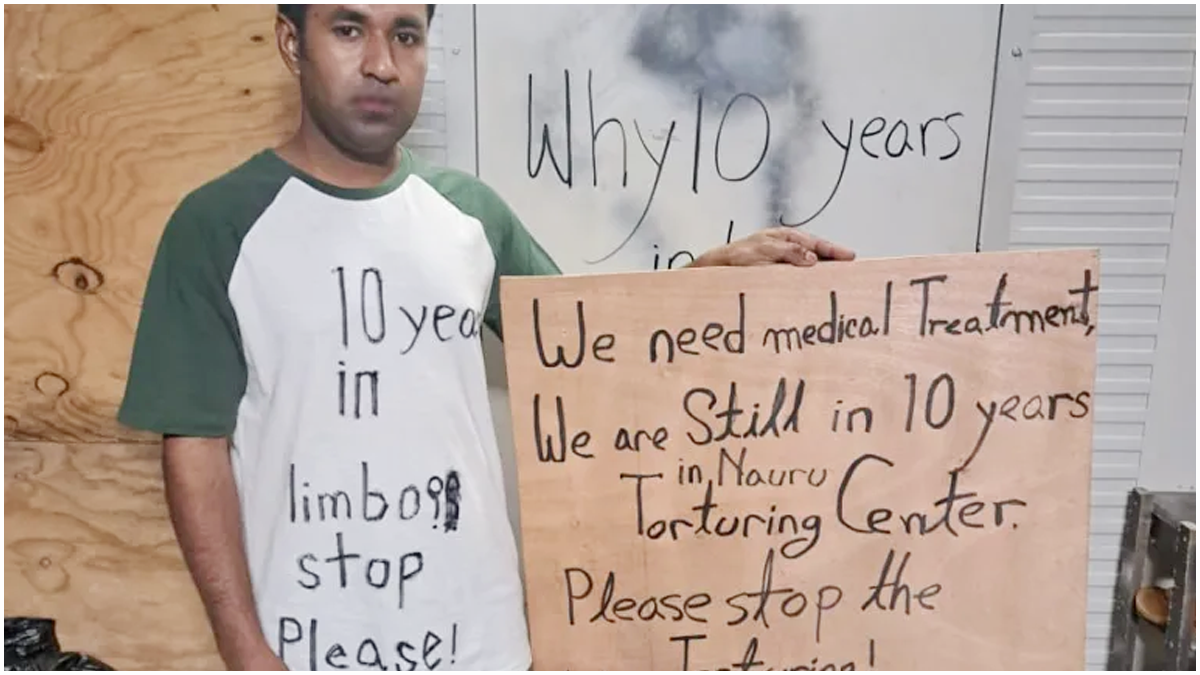 Why 10 years
in
10 yea
in
limbo?
stop
Please!
We need medical Treatment,
We are Still in 10 years
in, Nauru
Torturing Center.
Please stop the
Torturing!